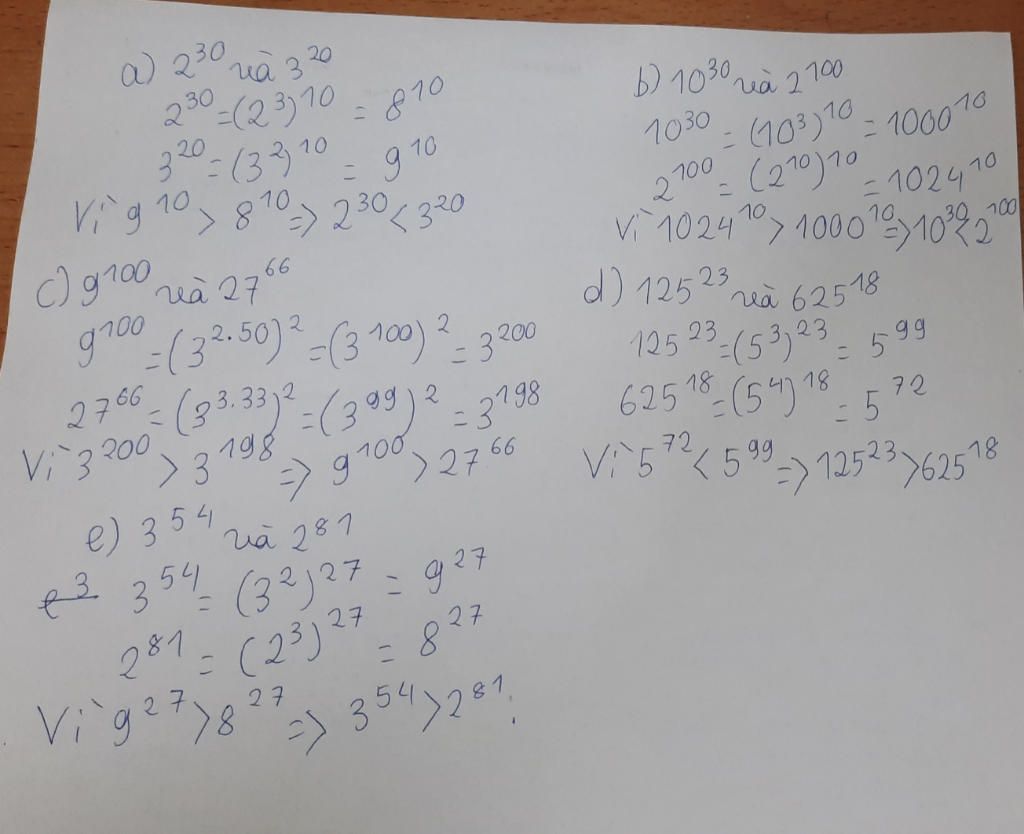 a) 2³⁰ và 3²⁰
2³⁰ = (2³)¹⁰ = 8¹⁰
3²⁰ = (3²)¹⁰ = 9¹⁰
Vì 9¹⁰ > 8¹⁰ => 2³⁰ < 3²⁰
b) 10³⁰ và 2¹⁰⁰
10³⁰ = (10³)¹⁰ = 1000¹⁰
2¹⁰⁰ = (2¹⁰)¹⁰ = 1024¹⁰
Vì 1024¹⁰ > 1000¹⁰ => 10³⁰ < 2¹⁰⁰
c) 9¹⁰⁰ và 27⁶⁶
9¹⁰⁰ = (3^2.50)² = (3¹⁰⁰)² = 3²⁰⁰
27⁶⁶ = (3^3.33)² = (3⁹⁹)² = 3¹⁹⁸
Vì 3²⁰⁰ > 3¹⁹⁸ => 9¹⁰⁰ > 27⁶⁶
d) 125²³ và 625¹⁸
125²³ = (5³)²³ = 5⁹⁹
625¹⁸ = (5⁴)¹⁸ = 5⁷²
Vì 5⁷² < 5⁹⁹ => 125²³ > 625¹⁸
e) 3⁵⁴ và 2⁸¹
3⁵⁴ = (3²)²⁷ = 9²⁷
2⁸¹ = (2³)²⁷ = 8²⁷
Vì 9²⁷ > 8²⁷ => 3⁵⁴ > 2⁸¹.